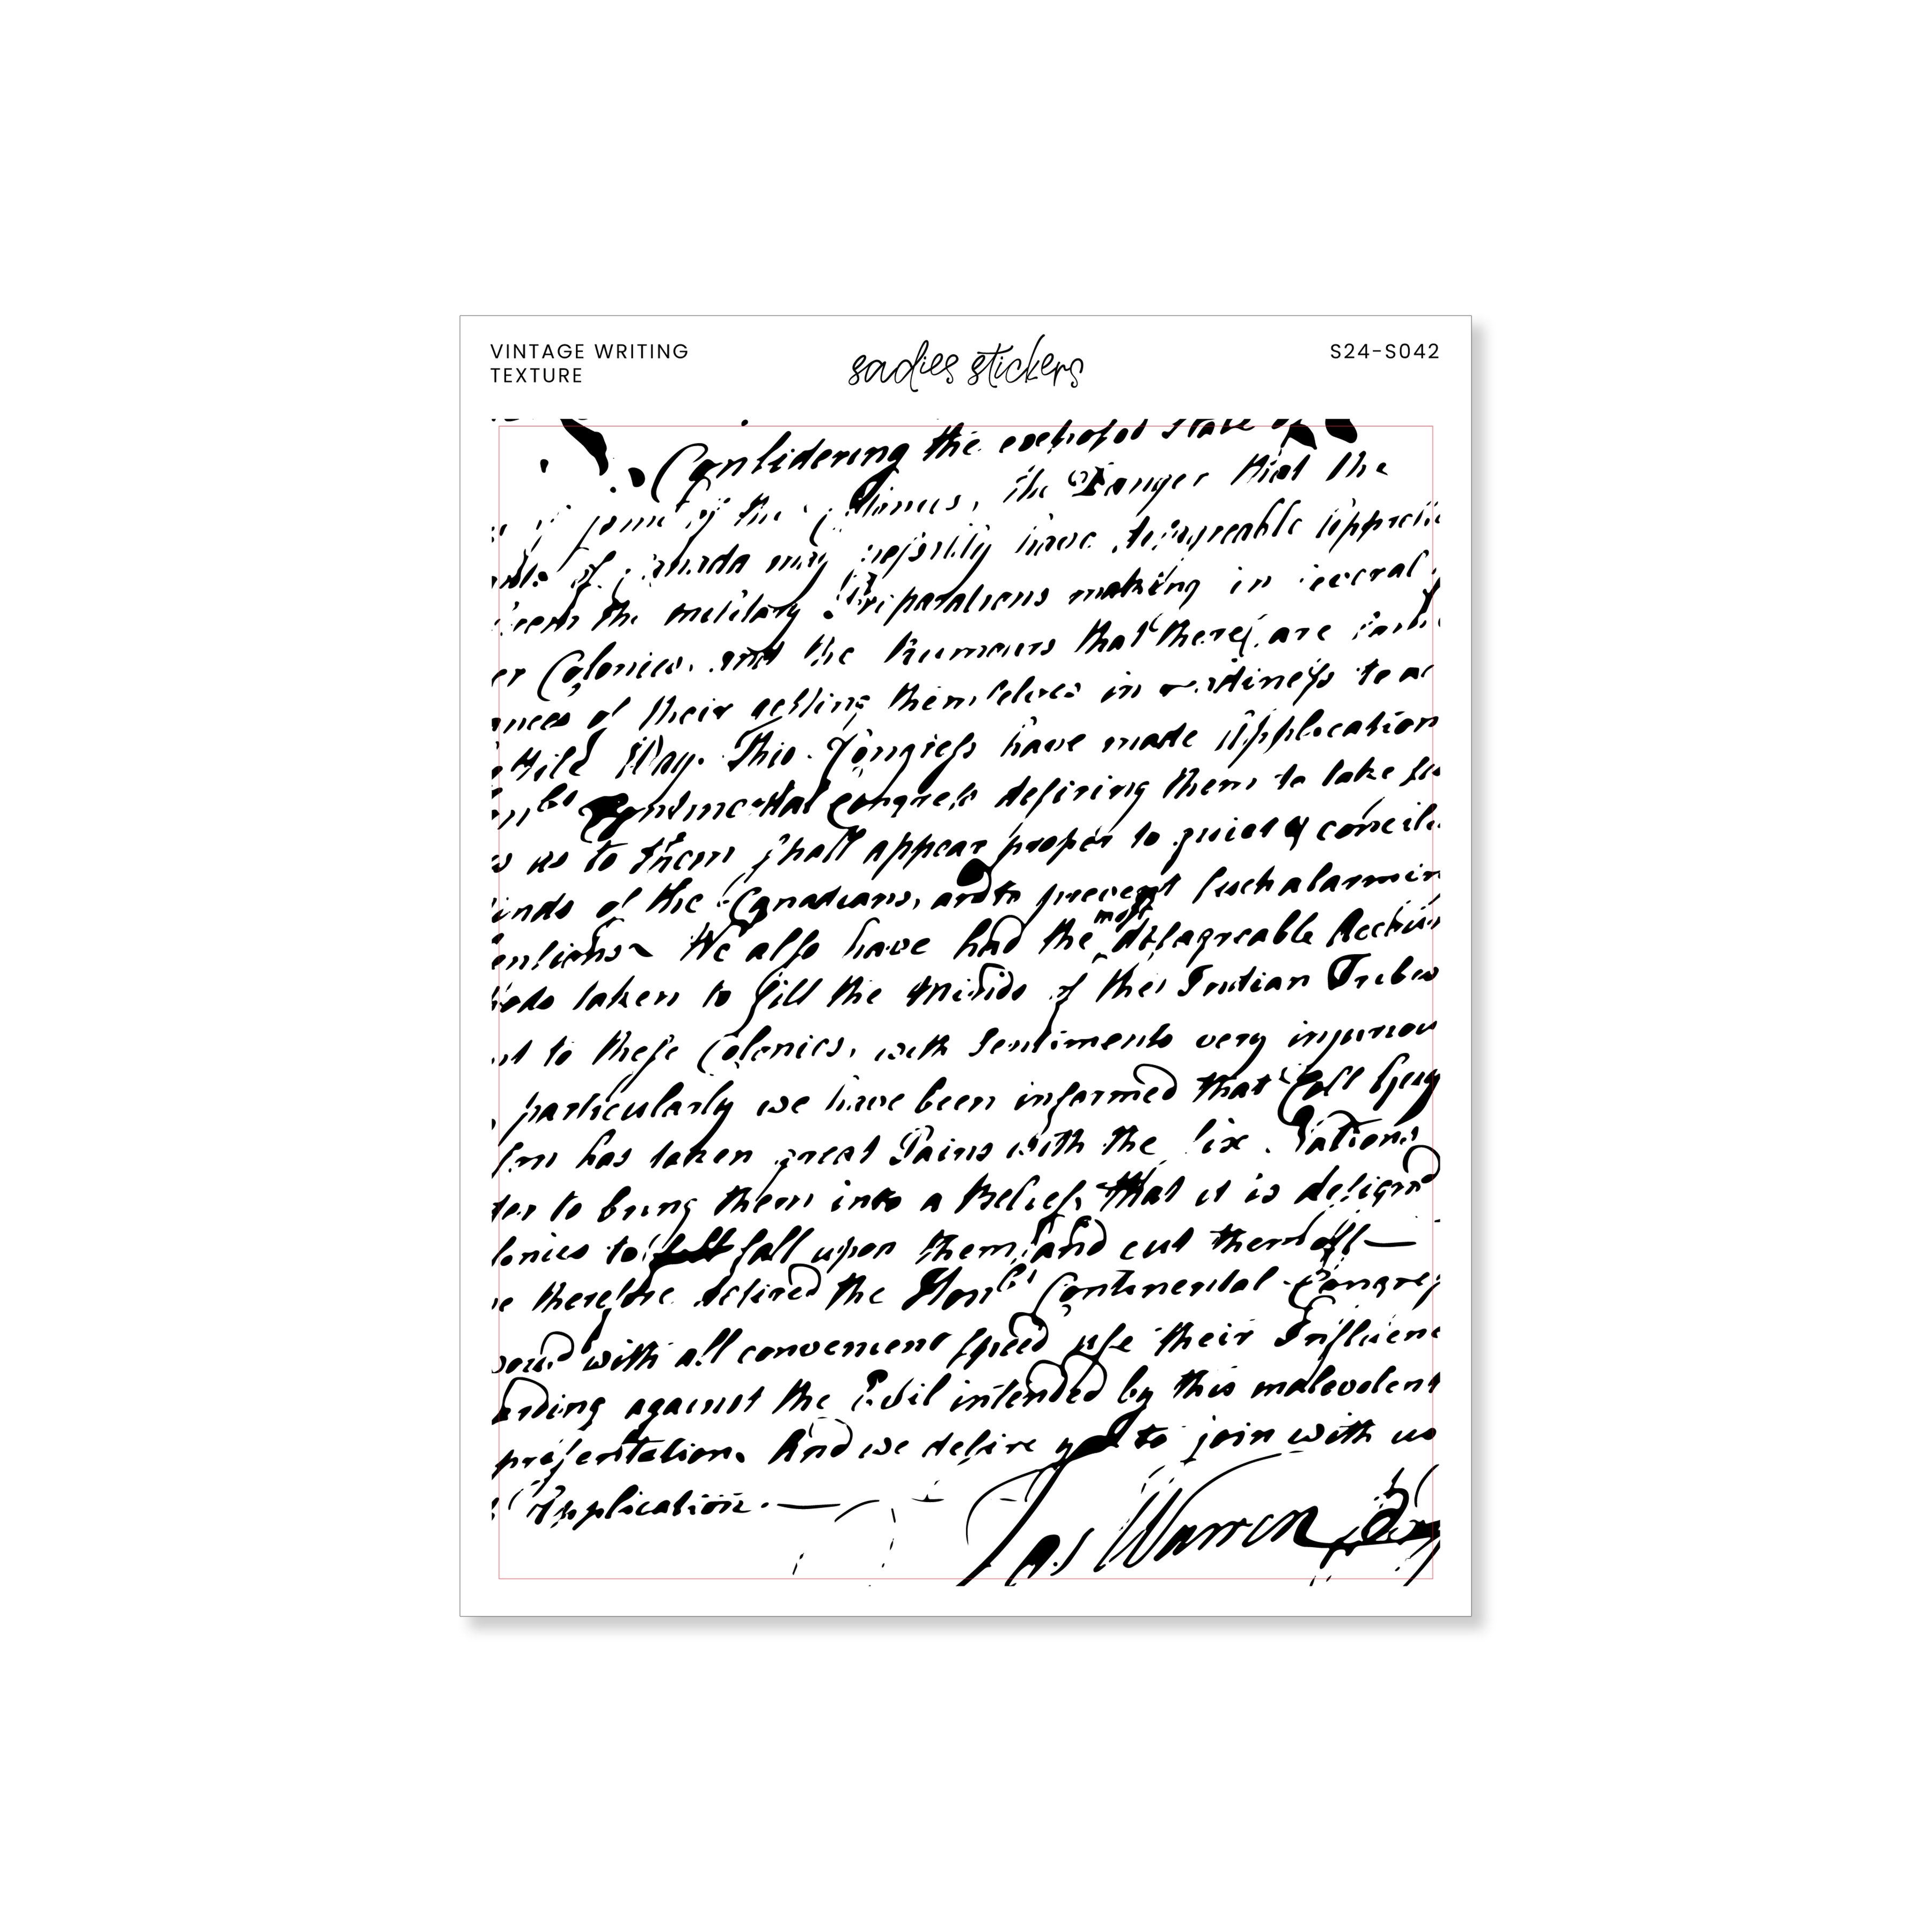 VINTAGE WRITING
TEXTURE
sadies stickers
S24-S042
Considering the exposed State of
some of the Colonies, the Danger that the
may injustly have disagreeable
the military Preparations making in several
er Colonies, and the humours that there are
of their getting themselves in readiness to ac
Hild Bay. This Congress have made Application
Continental Congress desiring them to take
s as to them shall appear proper to quiet & concili
inds of the Canadians, and to prevent such alarmin
entions We also have had the most disagreable
hods taken to fill the Minds of the Indian Tribes
nt to these Colonies, with Sentiments very injuriou
particularly we have been informed that Coll
has taken great Pains with the six Nations
der to bring them into a Belief, that it is design'd
lonies to fall upon them, and cut them off —
e therefore desired the Honble Continental Congre
would with all convenient speed use their Influen
ending against the Evil intended by this malevolent
presentation. And we desire you to join with us
Application. —
Jas Warren